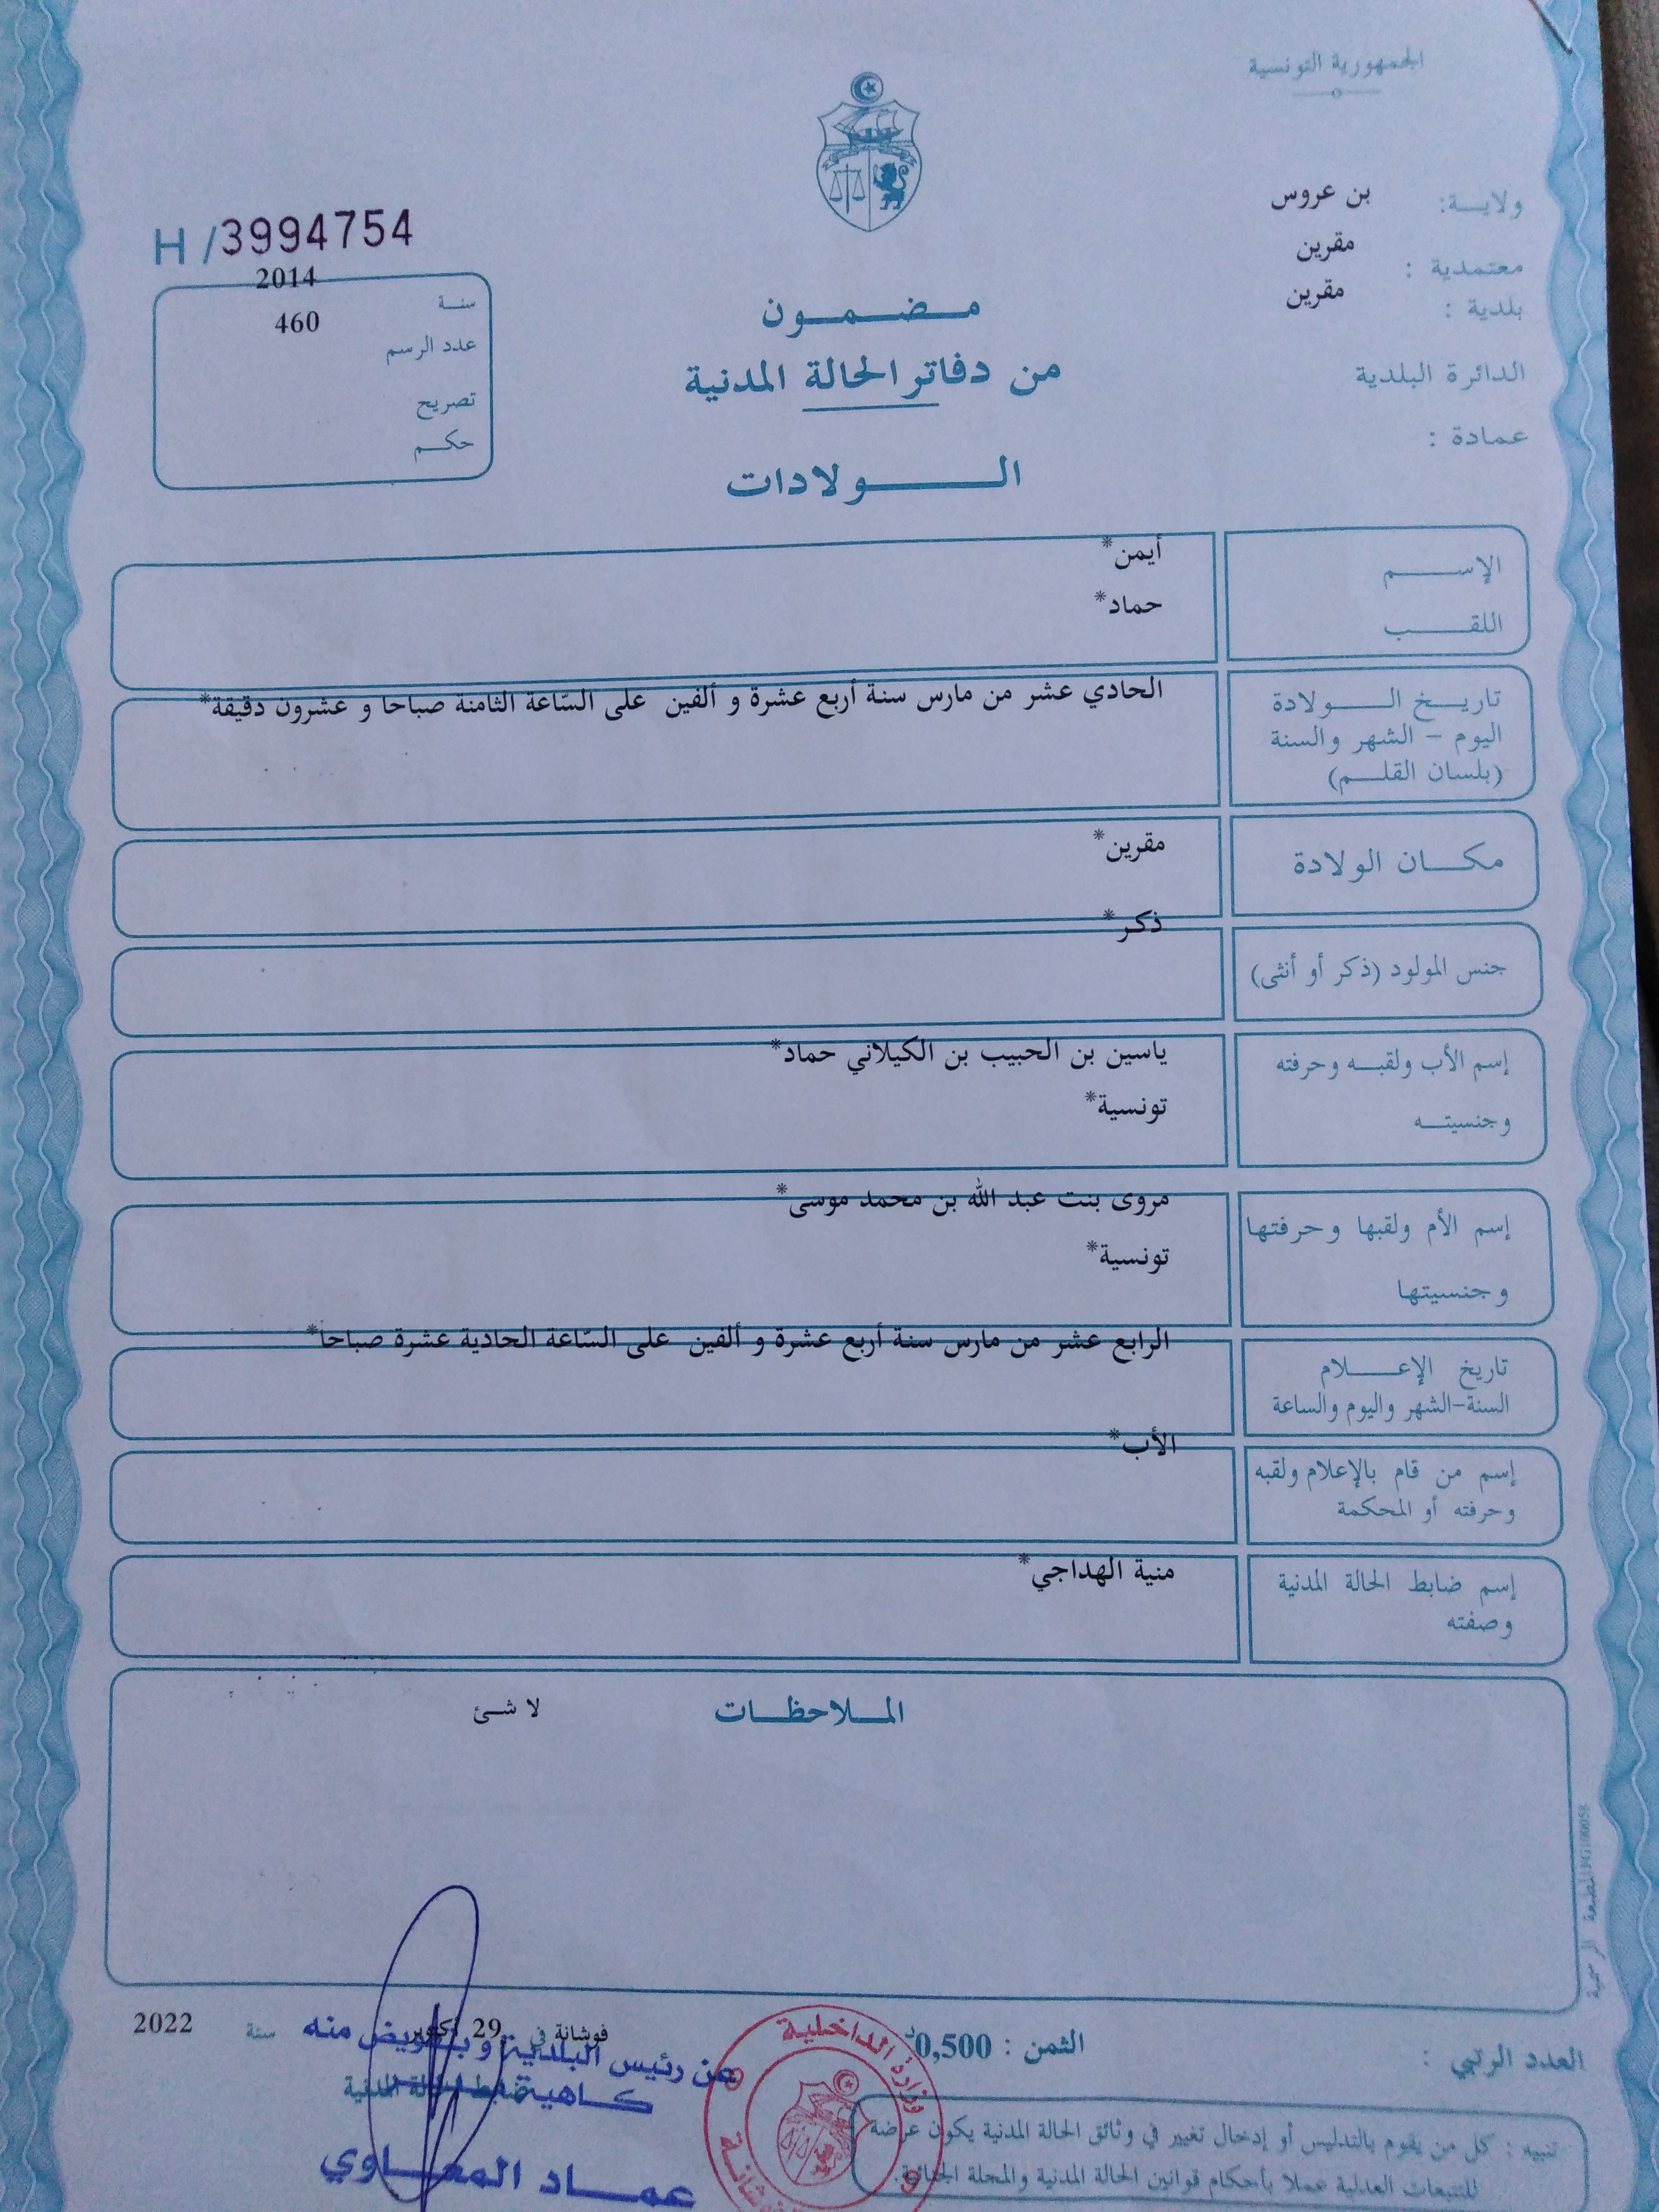 الجمهورية التونسية
ولاية: بن عروس
معتمدية : مقرين
بلدية : مقرين
الدائرة البلدية
عمادة :
H / 3994754
سنة 2014
عدد الرسم 460
تصريح
حكم
مضمون
من دفاتر الحالة المدنية
الولادات
الإسم أيمن*
اللقب حماد*
تاريخ الولادة الحادي عشر من مارس سنة أربع عشرة و ألفين على السّاعة الثامنة صباحا و عشرون دقيقة*
اليوم - الشهر والسنة
(بلسان القلم)
مكان الولادة مقرين*
جنس المولود (ذكر أو أنثى) ذكر*
إسم الأب ولقبه وحرفته ياسين بن الحبيب بن الكيلاني حماد*
وجنسيته تونسية*
إسم الأم ولقبها وحرفتها مروى بنت عبد الله بن محمد موسى*
وجنسيتها تونسية*
تاريخ الإعلام الرابع عشر من مارس سنة أربع عشرة و ألفين على السّاعة الحادية عشرة صباحا*
السنة-الشهر واليوم والساعة
إسم من قام بالإعلام ولقبه الأب*
وحرفته أو المحكمة
إسم ضابط الحالة المدنية منية الهداجي*
وصفته
الملاحظات لا شئ
المطبعة الرسمية
العدد الرتبي :
الثمن : 0,500د
فوشانة في 29 أكتوبر سنة 2022
ضابط الحالة المدنية
عن رئيس البلدية وبتفويض منه
كاهية
عماد
وزارة الداخلية
تنبيه : كل من يقوم بالتدليس أو إدخال تغيير في وثائق الحالة المدنية يكون عرضة
للتتبعات العدلية عملا بأحكام قوانين الحالة المدنية والمجلة الجنائية.